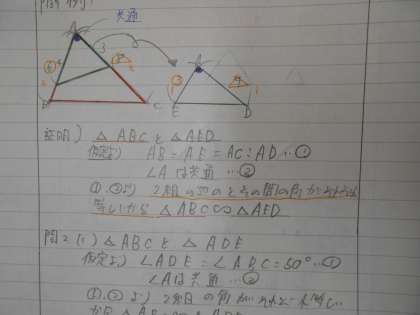 共通
A
A
B
C
E
D
証明) △ABCと△AED
仮定より AB:AE=AC:AD…①
∠Aは共通…②
①,②より 2組の辺の比とその間の角がそれぞれ
等しいから △ABC∽△AED
問2 (1) △ABCと△ADE
仮定より ∠ADE=∠ABC=50°…①
∠Aは共通…②
①,②より 2組の角がそれぞれ等しい